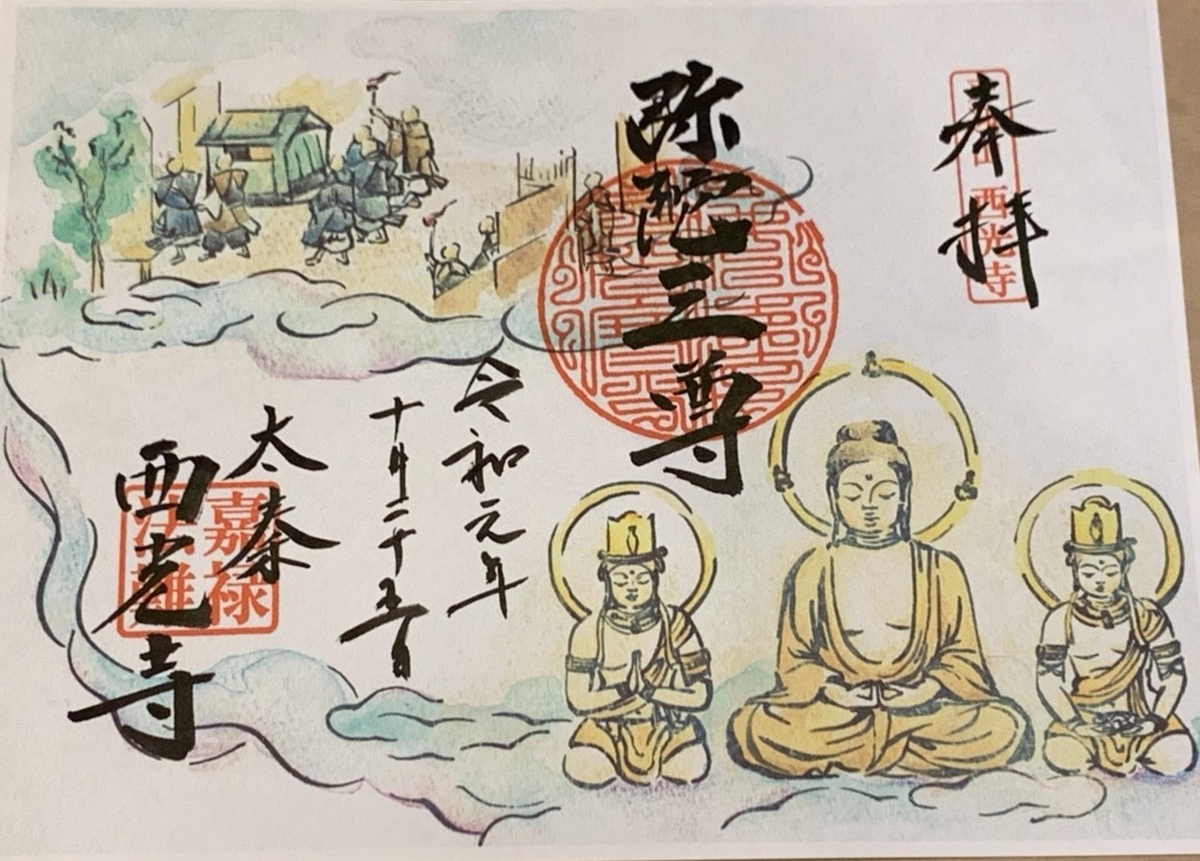 奉拝
西光寺
弥陀三尊
令和元年
十月二十五日
太秦
西光寺
嘉禄
法難